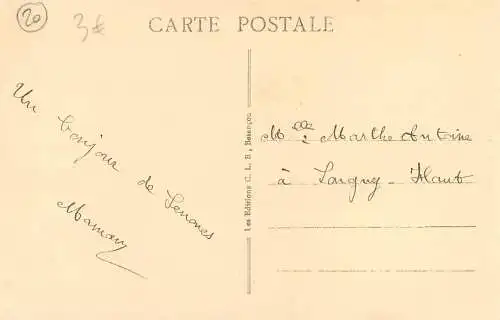 20
3€
CARTE POSTALE
Un bonjour
de Senones
Maman
Les Editions C. L. B., Besançon
Melle Marthe Antoine
à Languy-Haut